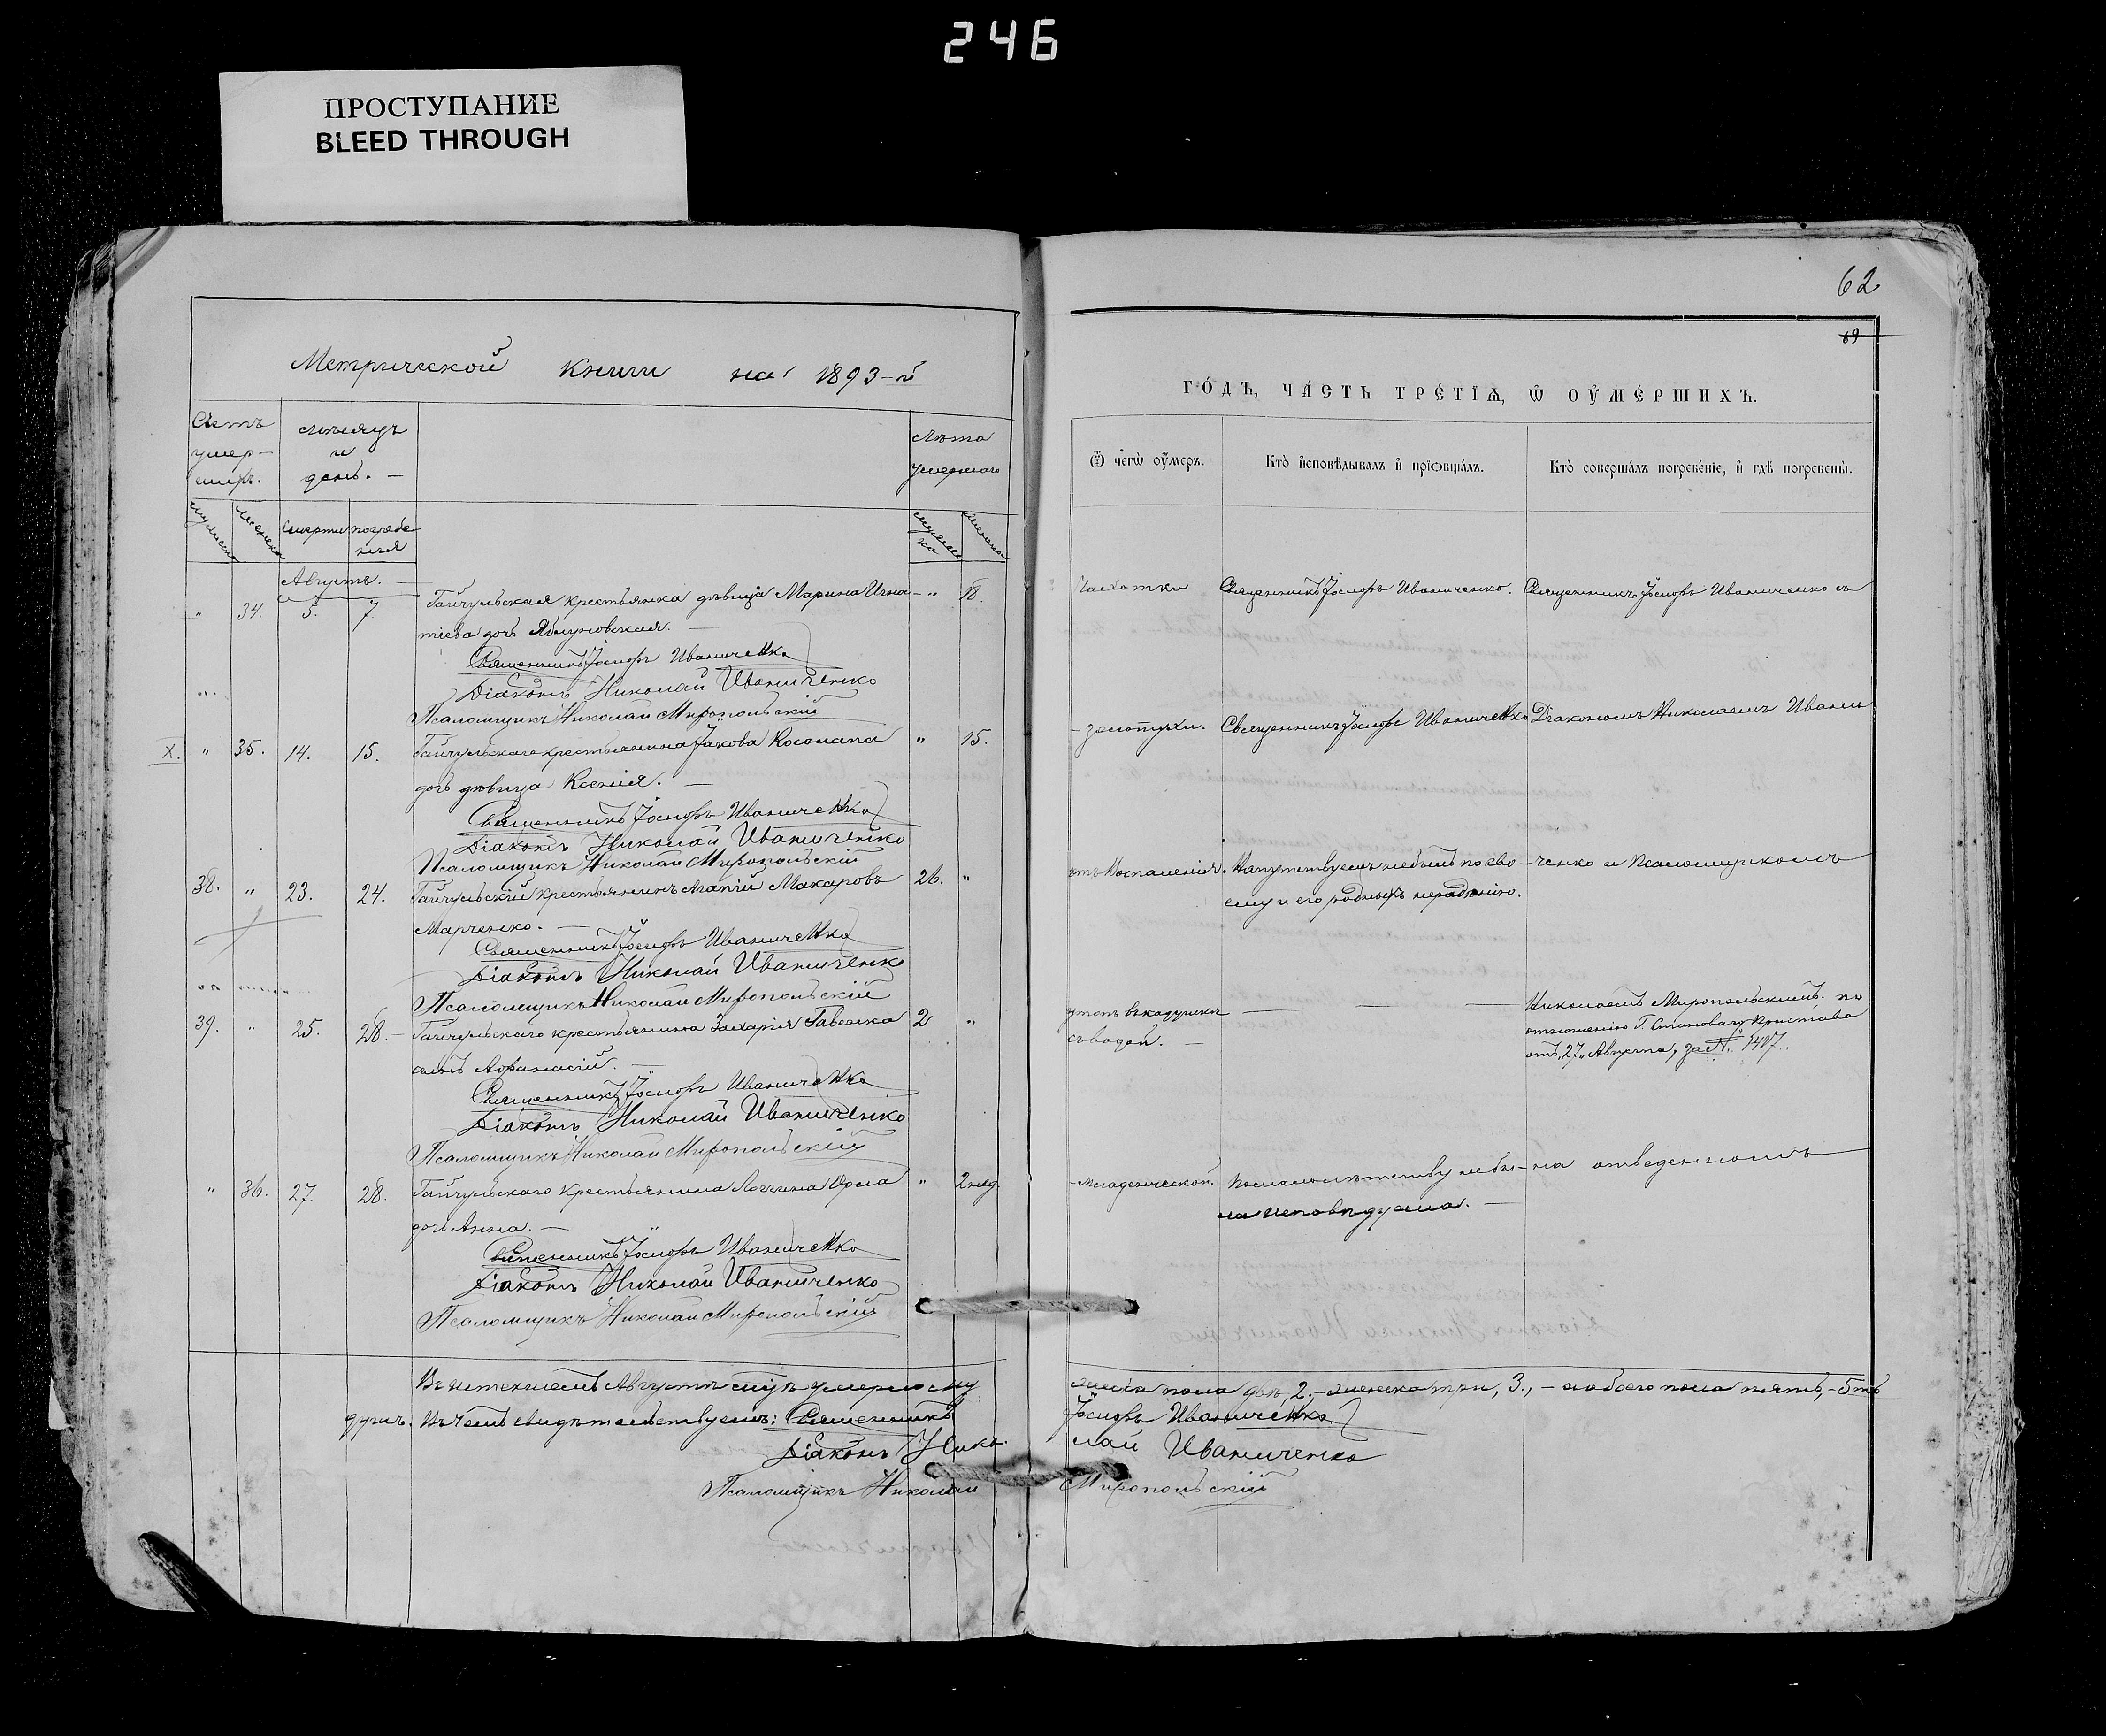 246
ПРОСТУПАНИЕ
BLEED THROUGH
62
69
Метрической книги на 1893-й
ГО́ДЪ, ЧА́СТЬ ТРЕ́ТІѦ, Ѡ ОУ҆МЕ́РШИХЪ.
Счетъ умер-шихъ.
мѣсяцъ и день. —
Лѣта умершаго
Ѿ чегѡ̀ оу҆́меръ.
Кто̀ и҆сповѣ́дывалъ и҆ прїѡбща́лъ.
Кто̀ соверша́лъ погребе́нїе, и҆ гдѣ̀ погребены̀.
мужеска
женска
смерти
погребе
нія
мужес
ка
женска
Августъ. —
" 34. 5. 7. Гайчульская крестьянка дѣвица Марина Игна- " 18.
тіева дочь Яблуновская. —
Священникъ Іосифъ Иваниченко
Діаконъ Николай Иваниченко
Псаломщикъ Николай Миропольскій
Чахотки
Священникъ Іосифъ Иваниченко.
Священникъ Іосифъ Иваниченко съ
X. " 35. 14. 15. Гайчульскаго крестьянина Іакова Косолапа " 15.
дочь дѣвица Ксенія. —
Священникъ Іосифъ Иваниченко
Діаконъ Николай Иваниченко
Псаломщикъ Николай Миропольскій
- золотухи.
Священникъ Іосифъ Иваниченко
Діакономъ Николаемъ Ивани
38. " 23. 24. Гайчульскій крестьянинъ Агапій Макаровъ 26. "
Марченко. —
Священникъ Іосифъ Иваниченко
Діаконъ Николай Иваниченко
Псаломщикъ Николай Миропольскій
отъ Воспаленія.
Напутствуемъ небылъ по сво-
ему и его родныхъ нерадѣнію.
ченко и Псаломщикомъ
39. " 25. 28. — Гайчульскаго крестьянина Захарія 2 "
сынъ Афанасій. —
Священникъ Іосифъ Иваниченко
Діаконъ Николай Иваниченко
Псаломщикъ Николай Миропольскій
утопъ въ кадушкѣ
съ водой. —
Николаемъ Миропольскимъ. по
отношенію Г. Становаго Пристава
отъ "27" Августа, за N. 1417.
" 36. 27. 28. Гайчульскаго крестьянина Логгина Орла " 2 нед.
дочь Анна. —
Священникъ Іосифъ Иваниченко
Діаконъ Николай Иваниченко
Псаломщикъ Николай Миропольскій
- Младенческой.
По малолѣтству небы-
ла исповѣдуема. —
на отведенномъ
Въ истекшемъ Августѣ мѣсяцѣ умерло му
жеска пола двѣ 2. - женска три, 3., - а обоего пола пять, - 5ть
душъ. Въ чемъ свидѣтельствуемъ: Священникъ
Іосифъ Иваниченко
Діаконъ Нико
лай Иваниченко
Псаломщикъ Николай
Миропольскій